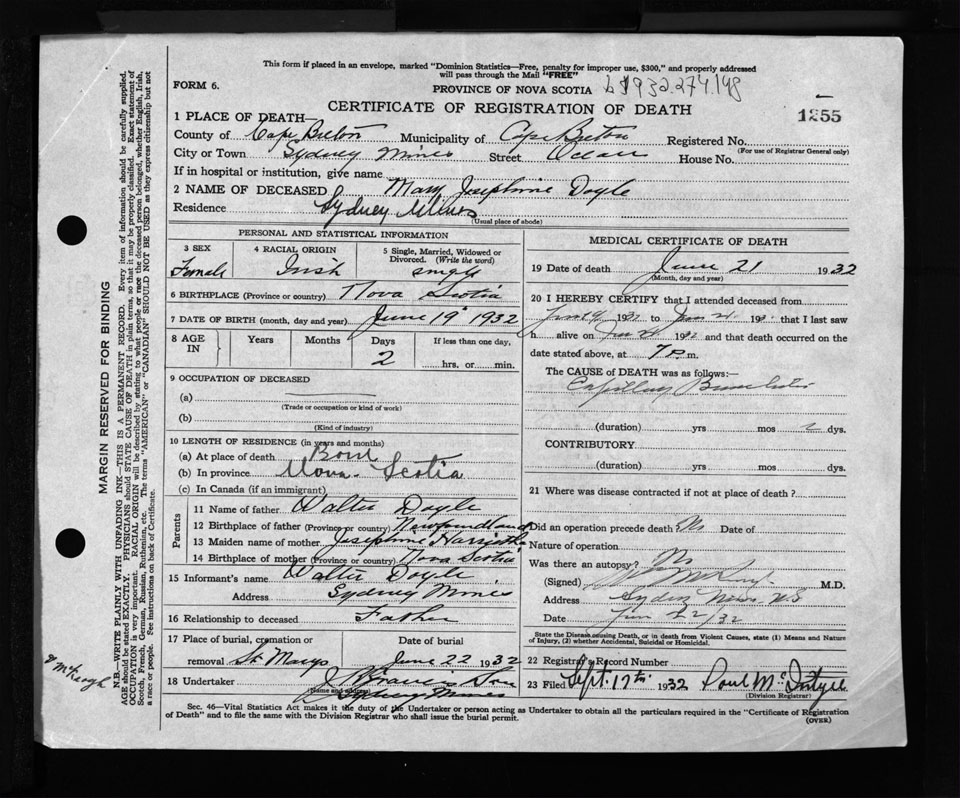 This form if placed in an envelope, marked "Dominion Statistics—Free, penalty for improper use, $300," and properly addressed
will pass through the Mail "FREE"
FORM 6.
PROVINCE OF NOVA SCOTIA
1932.274.148
CERTIFICATE OF REGISTRATION OF DEATH
1355
1 PLACE OF DEATH—
County of Cape Breton Municipality of Cape Breton Registered No.
(For use of Registrar General only)
City or Town Sydney Mines Street Ocean House No.
If in hospital or institution, give name
2 NAME OF DECEASED Mary Josephine Doyle
Residence Sydney Mines
(Usual place of abode)
PERSONAL AND STATISTICAL INFORMATION
3 SEX
Female
4 RACIAL ORIGIN
Irish
5 Single, Married, Widowed or
Divorced. (Write the word)
single
6 BIRTHPLACE (Province or country) Nova Scotia
7 DATE OF BIRTH (month, day and year) June 19 1932
8 AGE
IN
Years
Months
Days
2
If less than one day,
hrs. or min.
9 OCCUPATION OF DECEASED
(a)
(Trade or occupation or kind of work)
(b)
(Kind of industry)
10 LENGTH OF RESIDENCE (in years and months)
(a) At place of death Born
(b) In province Nova Scotia
(c) In Canada (if an immigrant)
Parents
11 Name of father Walter Doyle
12 Birthplace of father (Province or country) Newfoundland
13 Maiden name of mother Josephine
14 Birthplace of mother (Province or country) Nova Scotia
15 Informant's name Walter Doyle
Address Sydney Mines
16 Relationship to deceased Father
17 Place of burial, cremation or
removal St Marys
Date of burial
June 22 1932
18 Undertaker Son
(Name and address)
Sydney Mines
MEDICAL CERTIFICATE OF DEATH
19 Date of death June 21 1932
(Month, day and year)
20 I HEREBY CERTIFY that I attended deceased from
June 19 193 to June 21 193 that I last saw
h alive on June 21 1932 and that death occurred on the
date stated above, at 7 P.m.
The CAUSE of DEATH was as follows:—
Capillary Bronchitis
(duration) yrs mos 2 dys.
CONTRIBUTORY
(duration) yrs mos dys.
21 Where was disease contracted if not at place of death?
Did an operation precede death No Date of
Nature of operation
Was there an autopsy? No
(Signed) M.D.
Address Sydney Mines N.S
Date June 22/32
State the Disease causing Death, or in death from Violent Causes, state (1) Means and Nature
of Injury, (2) whether Accidental, Suicidal or Homicidal.
22 Registrar's Record Number
23 Filed Sept. 17th 1932 Paul McIntyre
(Division Registrar)
Sec. 46—Vital Statistics Act makes it the duty of the Undertaker or person acting as Undertaker to obtain all the particulars required in the "Certificate of Registration
of Death" and to file the same with the Division Registrar who shall issue the burial permit.
(OVER)
MARGIN RESERVED FOR BINDING
N.B.—WRITE PLAINLY WITH UNFADING INK—THIS IS A PERMANENT RECORD. Every item of information should be carefully supplied.
AGE should be stated EXACTLY. PHYSICIANS should STATE CAUSE OF DEATH in plain terms, so that it may be properly classified. Exact statement of
OCCUPATION is very important. RACIAL ORIGIN will be described by stating to what people or race the deceased person belonged, whether English, Irish,
Scotch, French, German, Russian, Ruthenian, etc. The terms "AMERICAN" or "CANADIAN" SHOULD NOT BE USED as they express citizenship but not
a race or people. See instructions on back of Certificate.
McKeogh